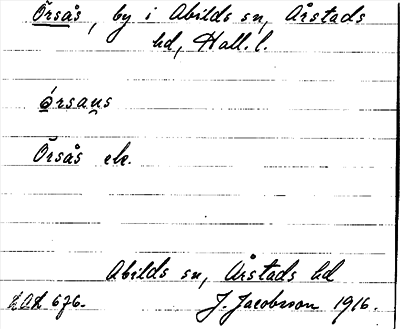 Örsås, by i Abilds sn, Årstads
hd, Hall. l.
ǿrsaus
Örsås ek.
Abilds sn, Årstads hd
J. Jacobsson 1916.